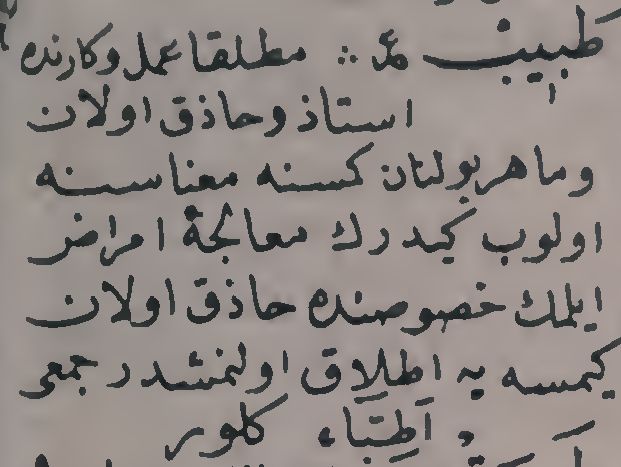 طبيب عر ∴ مطلقا عمل وكارنده
استاذ وحاذق اولان
وماهر بولنان كسنه معناسنه
اولوب كيدرك معالجۀ امراض
ايلمك خصوصنده حاذق اولان
كيمسه يه اطلاق اولنمشدر جمعى
اَطِبَّاء كلور